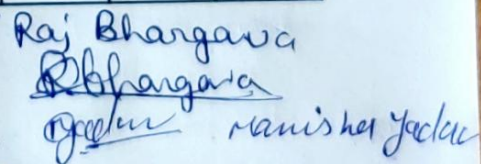 Raj Bhargava
RBhargava
Yadav Manisha Yadav